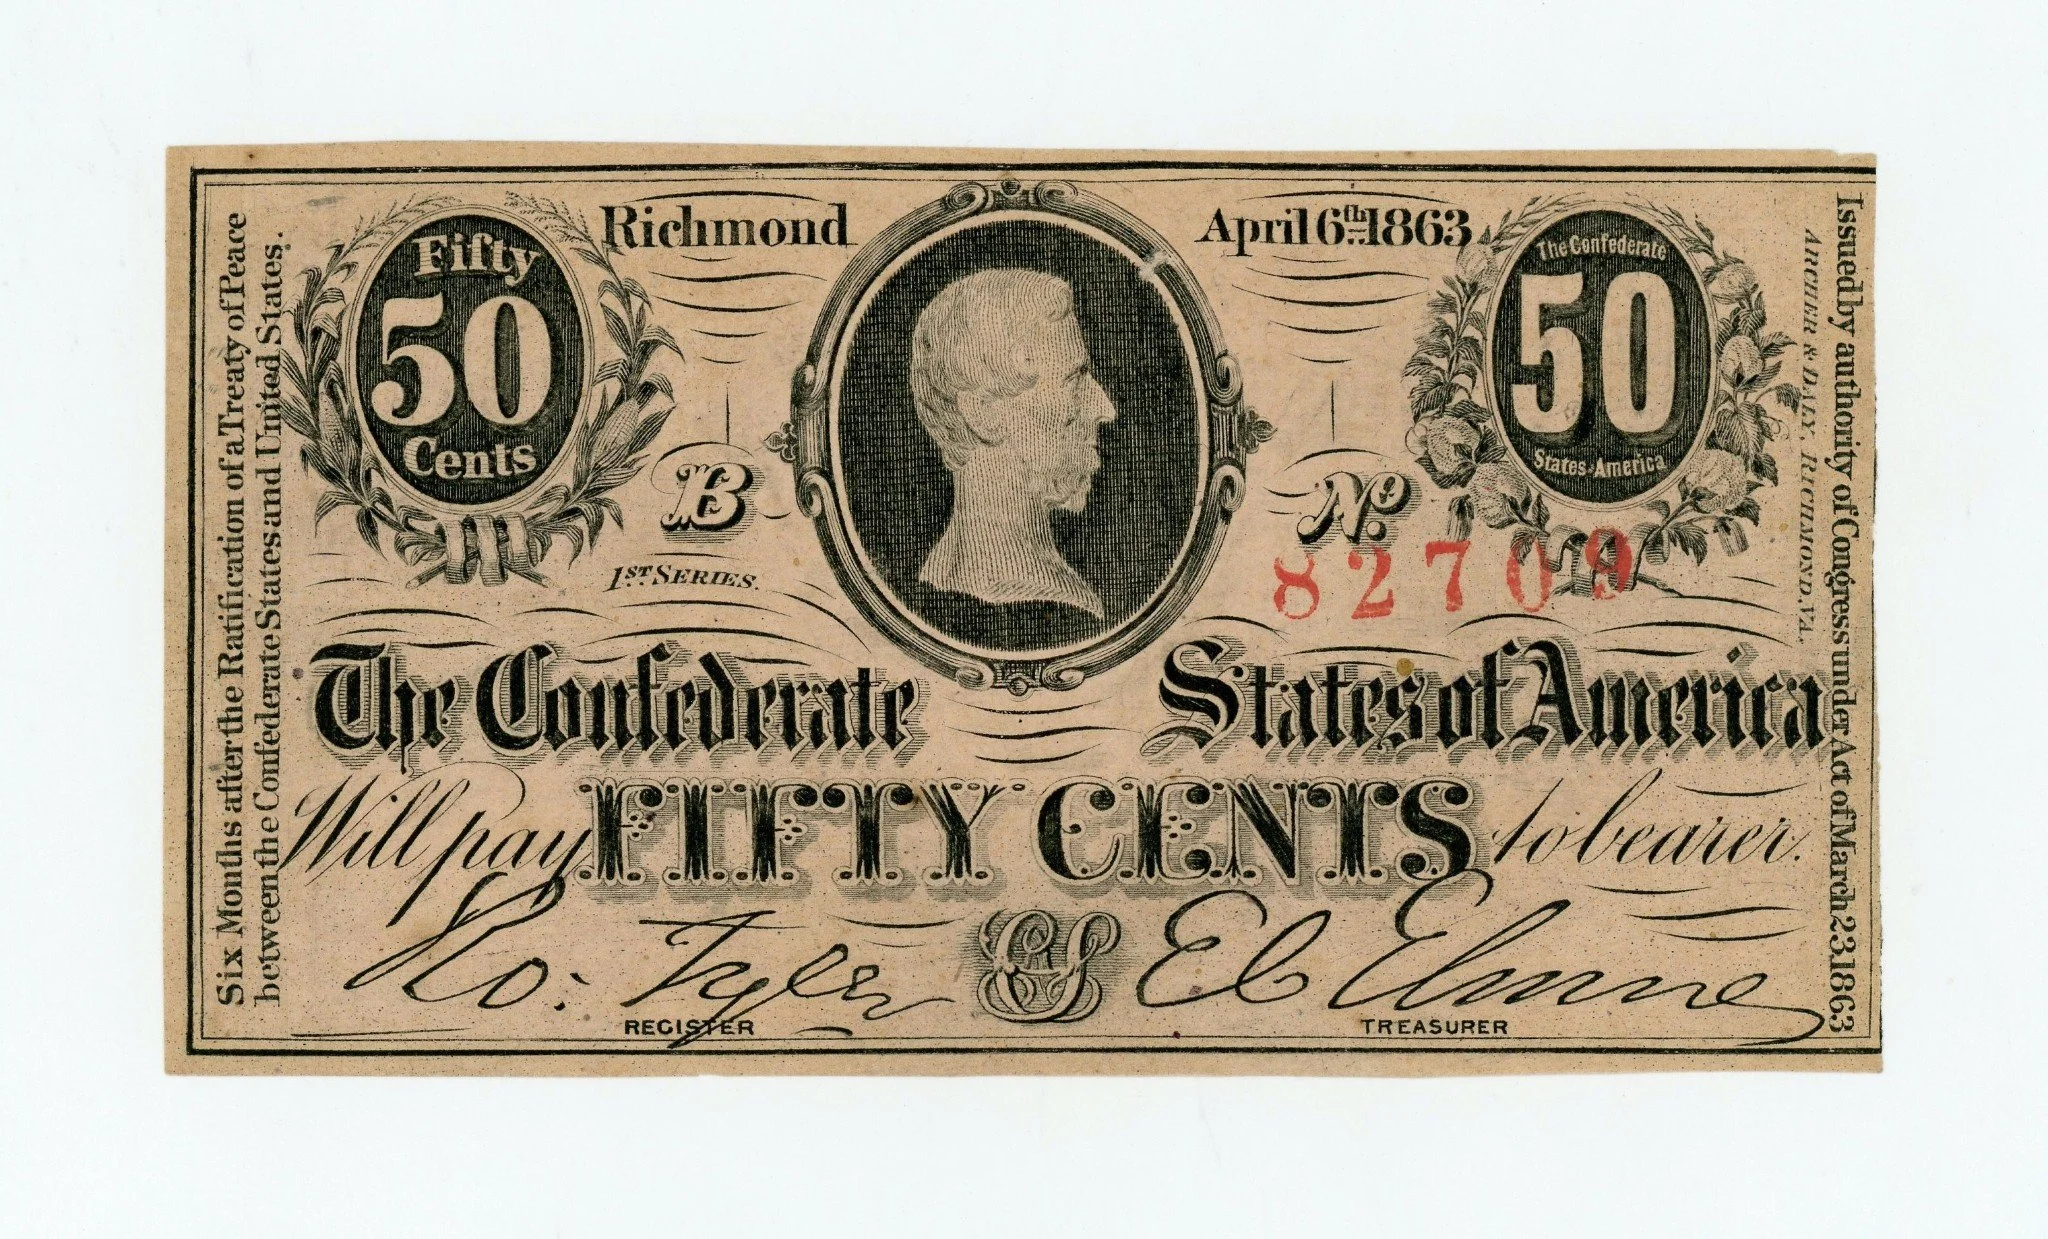 Six Months after the Ratification of a Treaty of Peace
between the Confederate States and United States.
Fifty
50
Cents
Richmond
April 6th 1863
The Confederate
50
States America
B
1ST SERIES.
No.
82709
The Confederate States of America
Will pay FIFTY CENTS to bearer.
Ro: Tyler
REGISTER
CSA
E C Elmore
TREASURER
ARCHER & DALY, RICHMOND, VA.
Issued by authority of Congress under Act of March 23, 1863